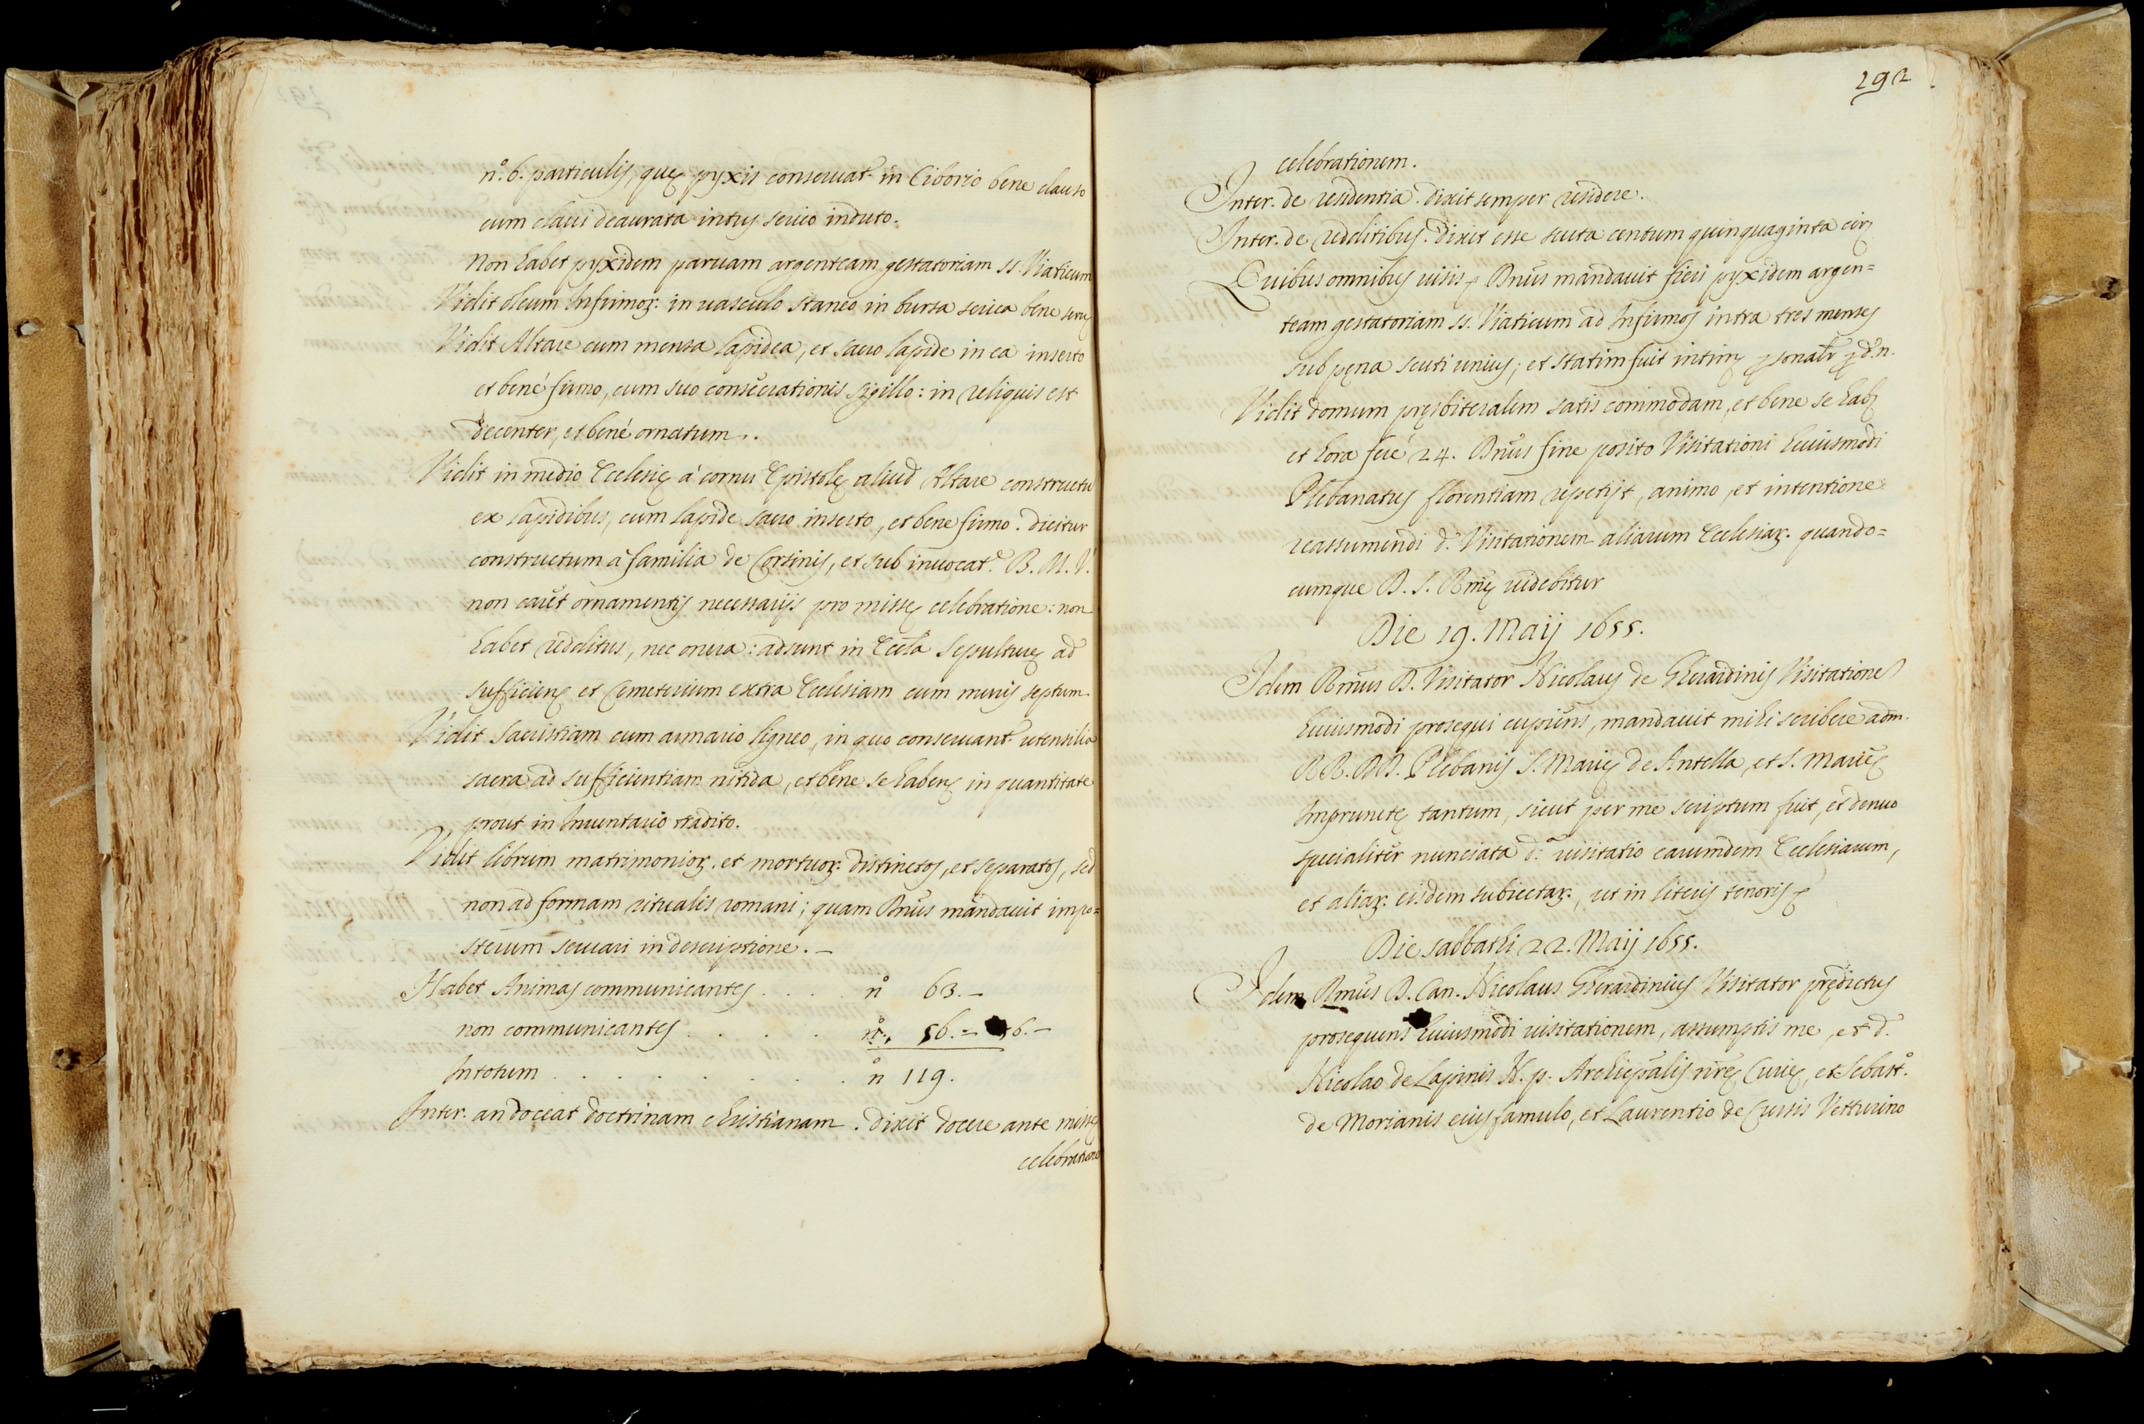 nº. 6. particulis, quę pyxis conseruat.r in Ciborio bene clauso
cum claui deaurata intus serico induto.
Non habet pyxidem paruam argenteam gestatoriam SS. Viaticum
Vidit oleum Infirmoꝝ: in uasculo staneo in bursa serica bene seru
Vidit Altare cum mensa lapidea, et sacro lapide in ea inserto
et bené firmo, cum suo consecrationis sigillo: in reliquis est
decenter, et bené ornatum.
Vidit in medio Ecclesię á cornu Epistolę aliud Altare constructu
ex lapidibus, cum lapide sacro inserto, et bene firmo. dicitur
constructum à familia de Corsinis, et sub inuocat.e B. M. V.
non caret ornamentis necessarijs pro missę celebratione: non
habet redditus, nec onera: adsunt in Eccl̃a sepulturę ad
sufficienꝫ et Cemeterium extra Ecclesiam cum muris septum.
Vidit Sacristiam cum armario ligneo, in quo conseruant.r utensilia
sacra ad sufficientiam nitida, et bene se habenꝫ in quantitate
prout in Inuentario tradito.
Vidit librum matrimonioꝝ. et mortuoꝝ: distinctos, et separatos, sed
non ad formam ritualis romani; quam Rm̃us mandauit impo=
sterum seruari in descriptione. –
Habet Animas communicantes . . . . nº 63. –
non communicantes . . . . . nº. 56. – 56. –
In totum . . . . . . . . . nº 119.
Inter. an doceat doctrinam christianam. dixit docere ante missę
celebratione
292
celebrationem.
Inter. de residentia. dixit semper residere.
Inter. de redditibus. dixit esse scuta centum quinquaginta circꝫ
Quibus omnibus uisis, Rm̃us mandauit fieri pyxidem argen=
team gestatoriam SS. Viaticum ad Infirmos intra tres menses
sub pęna scuti unius; et statim fuit intimꝫ ꝑsonalr̃ ꝑ dº. n.
Vidit domum pręsbiteralem satis commodam, et bene se habꝫ
et hora feré 24. Rm̃us fine posito Visitationi huiusmodi
Plebanatus florentiam repetijt, animo, et intentione
reassumendi d. Visitationem aliarum Ecclesiaꝝ. quando=
cumque D. S. Rm̃ę uidebitur
Die 19. Maij 1655.
Idem Rm̃us D. Visitator Nicolaus de Gherardinis Visitatione
huiusmodi prosequi cupiens, mandauit mihi scribere adm.
RR. DD. Plebanis S. Marię de Antella, et S. Marię
Imprunetę tantum, sicut per me scriptum fuit, et denuo
specialiter nunciata d.a uisitatio earumdem Ecclesiarum,
et aliaꝝ: eisdem subiectaꝝ., ut in literis tenoris ꝫ
Die sabbathi 22. Maij 1655.
Idem Rm̃us D. Can. Nicolaus Gherardinius Visitator prędictus
prosequens huiusmodi uisitationem, assumptis me, et d.
Nicolao de Lapinis N. p. Archiepalis nr̃ę Curię, et Sebast.º
de Morianis eius famulo, et Laurentio de Cursis Vetturino